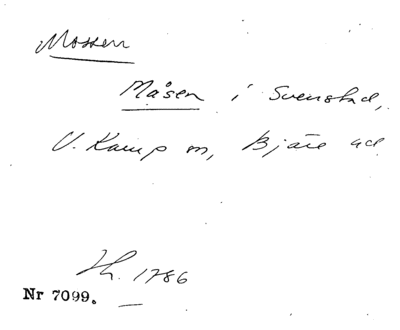 Mossen
Måsen i Svenstad,
V. Karup sn, Bjäre hd
Lh. 1786
Nr 7099.